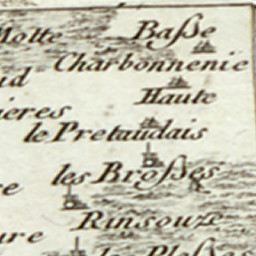 Molte Basse
Charbonnenie
ud
Haute
ieres
le Pretaudais
les Brosses
re
Rinsouze
ure
les Plesses